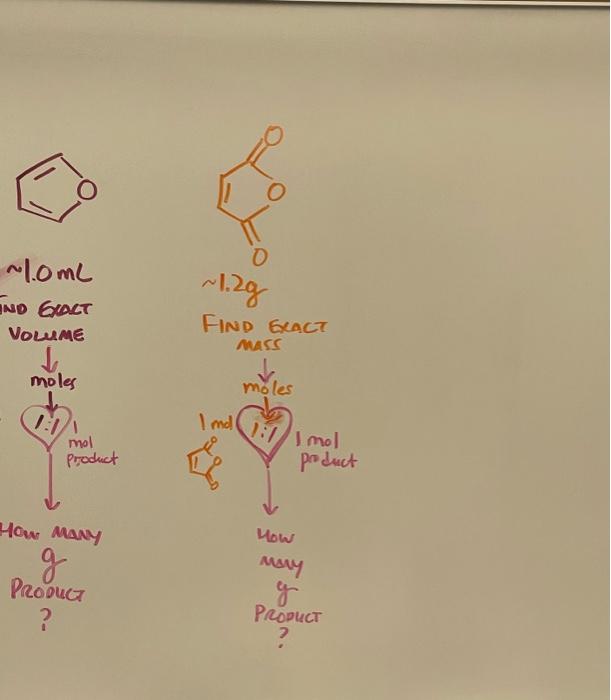 O
~1.0 mL
IND EXACT
VOLUME
moles
1:1
1
mol
product
HOW MANY
g
PRODUCT
?
O
O
O
~1.2g
FIND EXACT
MASS
moles
1 mol
1:1
1 mol
product
O
O
O
HOW
MANY
g
PRODUCT
?